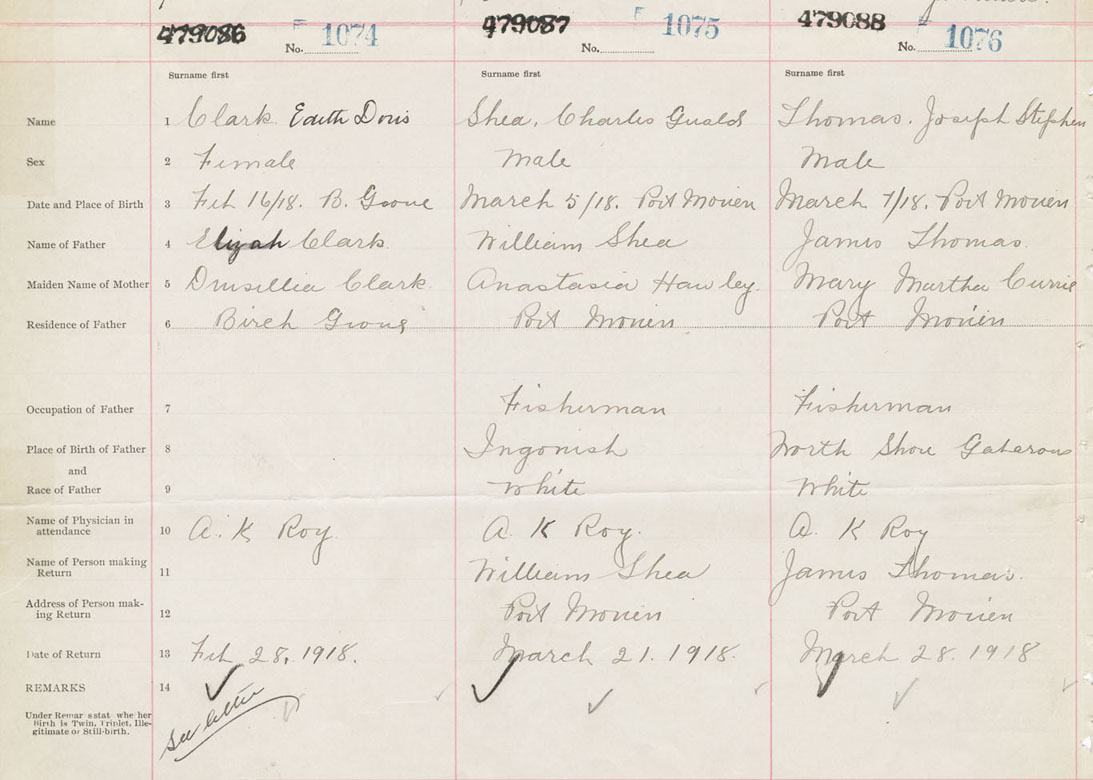 479086 F 1074 479087 F 1075 479088 F 1076
No. No. No.
Surname first Surname first Surname first
Name 1 Clark. Edith Doris Shea, Charles Guald Thomas. Joseph Stephen
Sex 2 Female Male Male
Date and Place of Birth 3 Feb 16/18. B. Grove March 5/18. Port Morien March 7/18. Port Morien
Name of Father 4 Elizah Clark. William Shea James Thomas.
Maiden Name of Mother 5 Drusillia Clark. Anastasia Hawley. Mary Martha Currie
Residence of Father 6 Birch Grove Port Morien Port Morien
Occupation of Father 7 Fisherman Fisherman
Place of Birth of Father 8 Ingonish North Shore Gabarous
and
Race of Father 9 White White
Name of Physician in
attendance 10 A. K Roy A. K Roy. A. K Roy
Name of Person making
Return 11 William Shea James Thomas.
Address of Person mak-
ing Return 12 Port Morien Port Morien
Date of Return 13 Feb 28, 1918. March 21. 1918. March 28. 1918
REMARKS 14
see letter
Under Remar s stat whe her
Birth is Twin, Triplet, Ille-
gitimate or Still-birth.